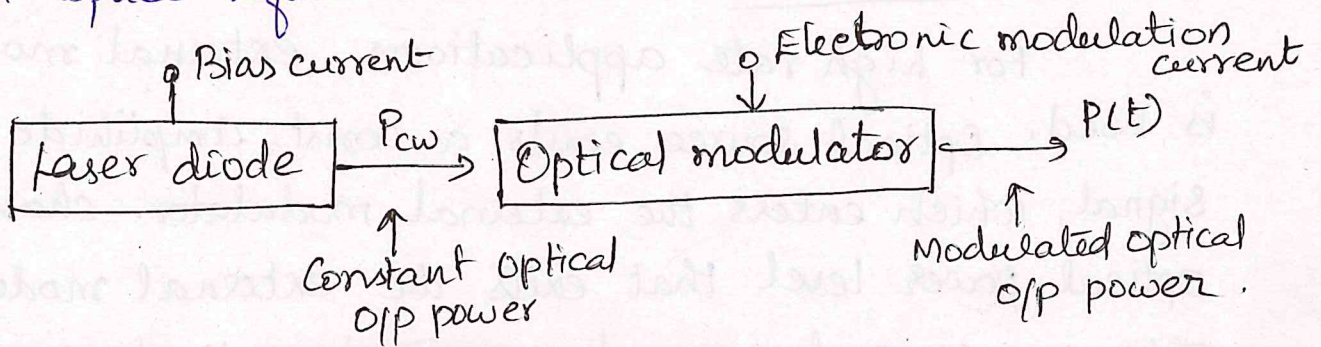 Bias current
Electronic modulation
current
Laser diode
Pcw
Optical modulator
P(t)
Constant optical
O/p power
Modulated optical
O/p power.